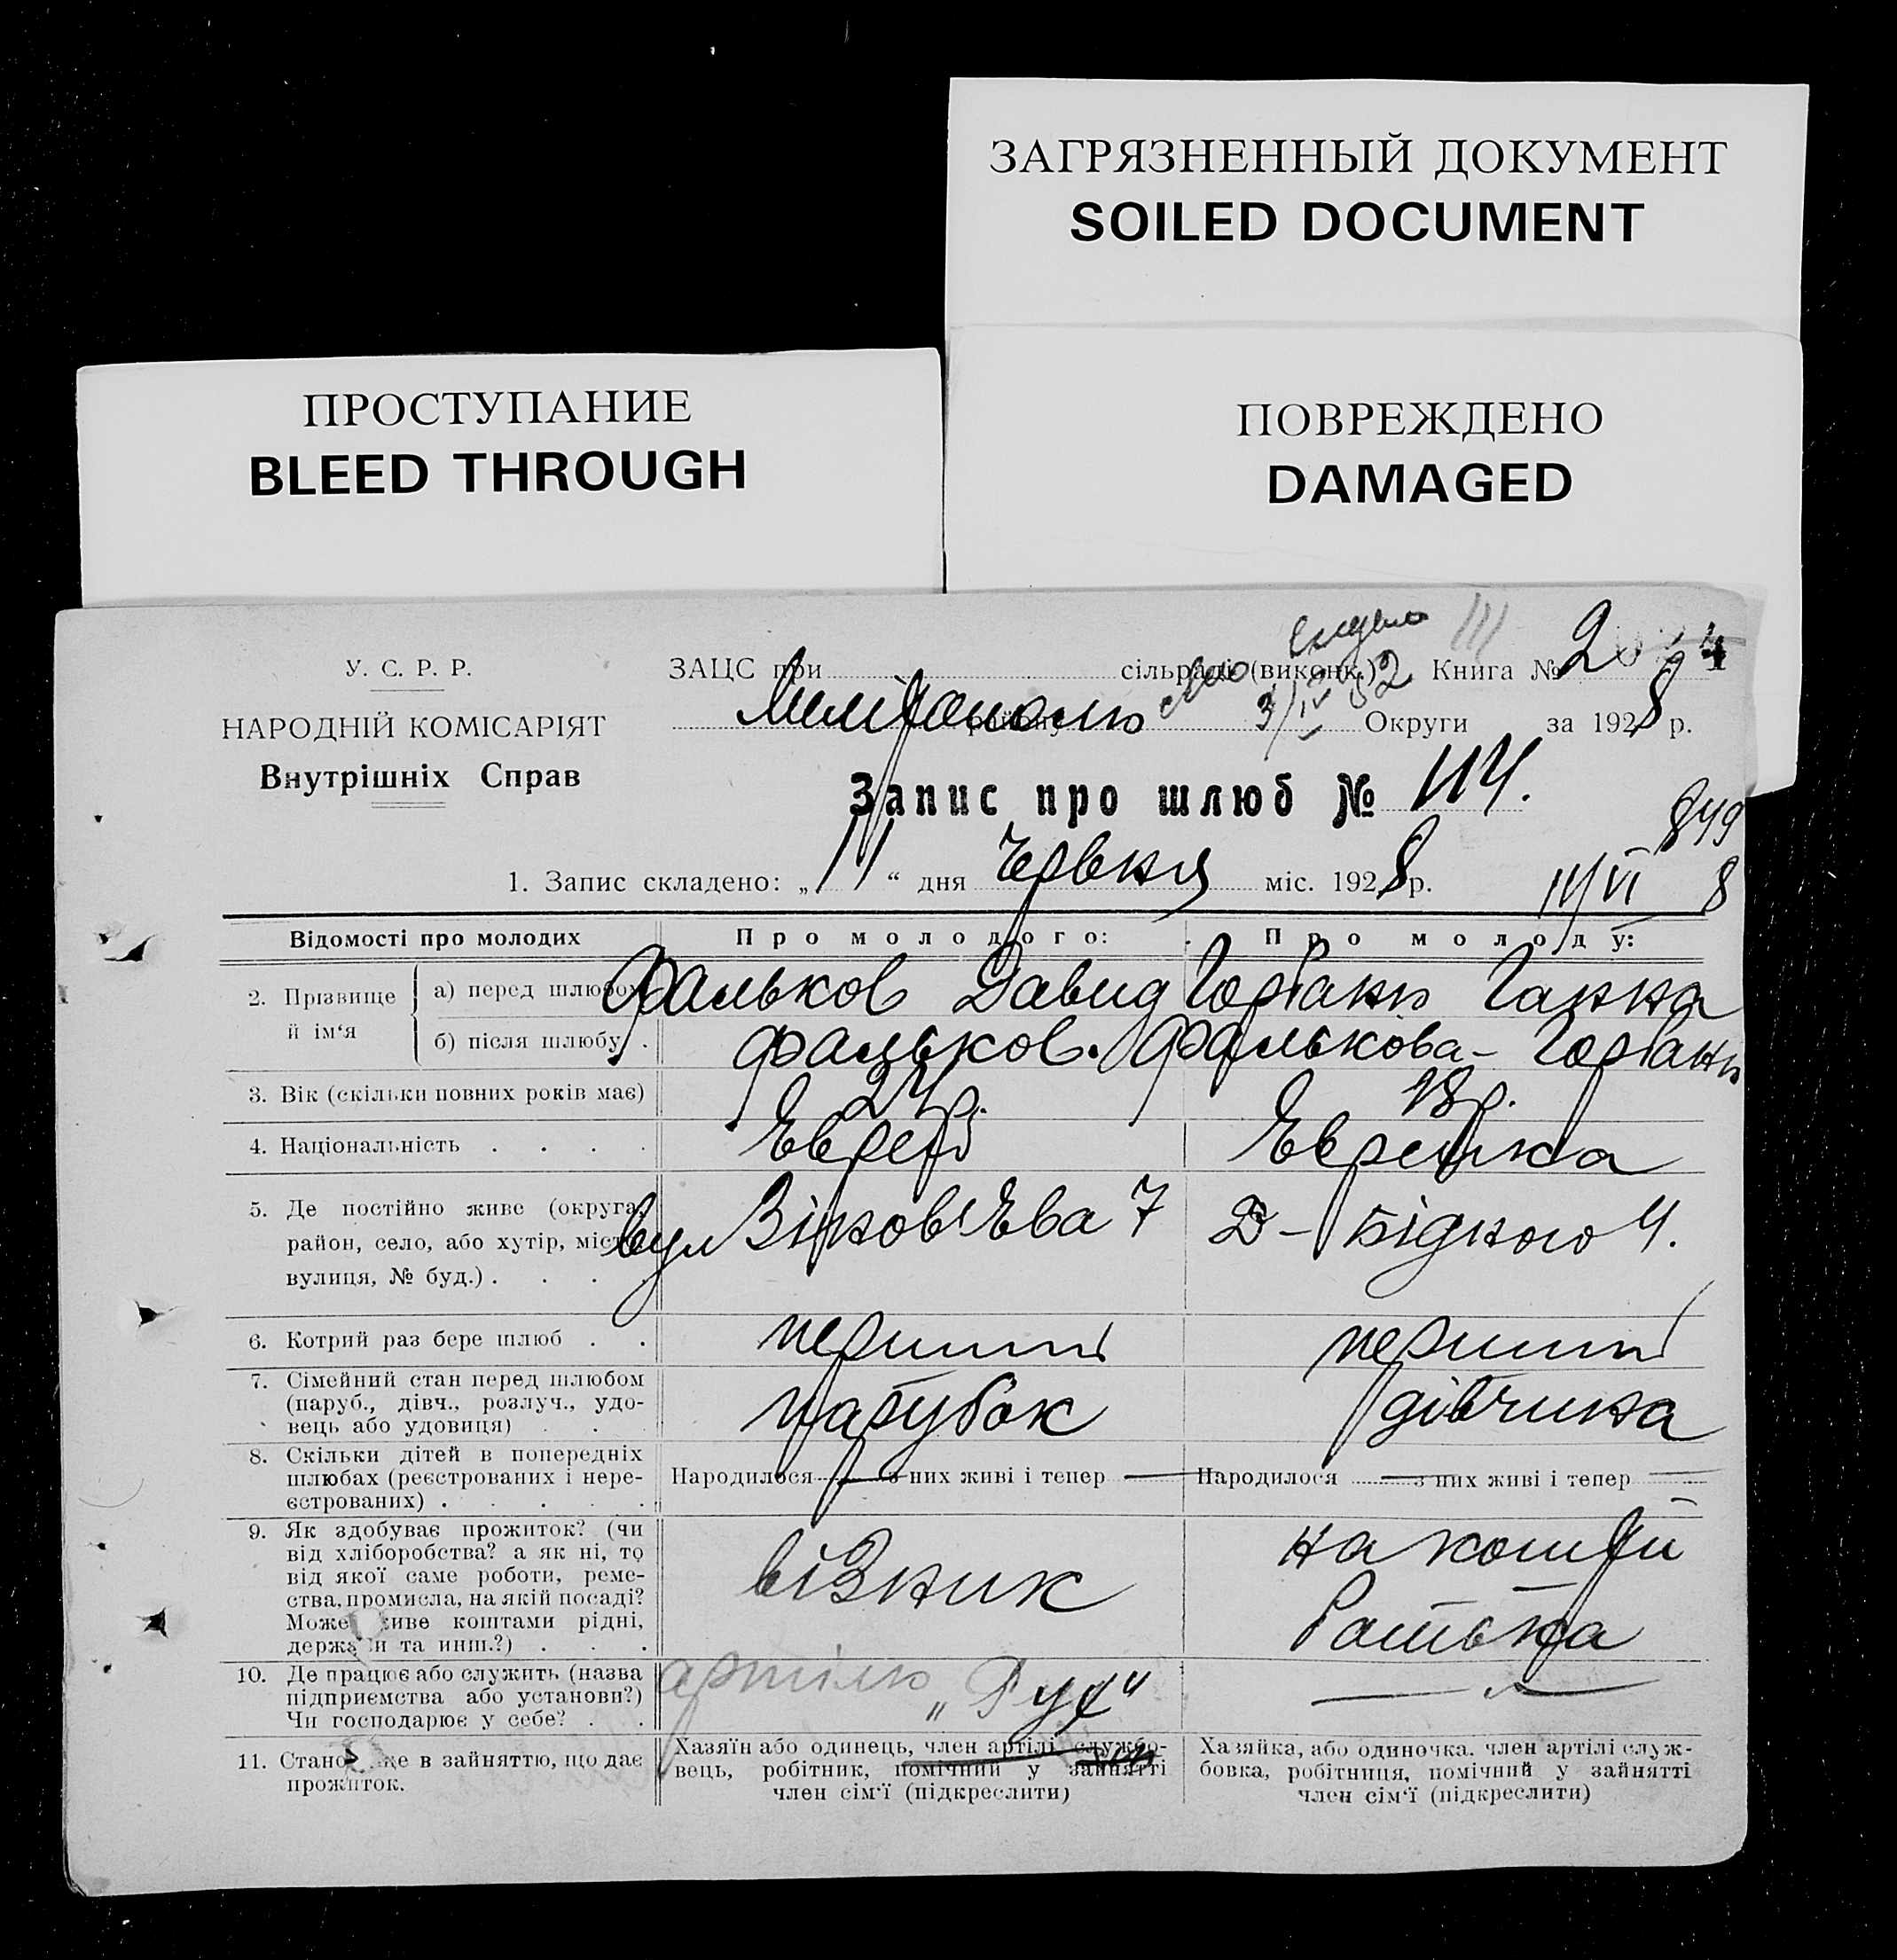 ЗАГРЯЗНЕННЫЙ ДОКУМЕНТ
SOILED DOCUMENT
ПРОСТУПАНИЕ
BLEED THROUGH
ПОВРЕЖДЕНО
DAMAGED
У. С. Р. Р.
НАРОДНІЙ КОМІСАРІЯТ
Внутрішніх Справ
ЗАЦС при сільради (виконк.) Книга № 2
району Округи за 1928 р.
Запис про шлюб № 114.
849
1. Запис складено: „11“ дня Червня міс. 1928 р.
Відомості про молодих
Про молодого:
Про молоду:
2. Прізвище й ім‘я
а) перед шлюбом
Фальков Давид
Ганна
б) після шлюбу
Фальков.
Фалькова-
3. Вік (скільки повних років має)
24 р.
18 р.
4. Національність
Еврей
Еврейка
5. Де постійно живе (округа,
район, село, або хутір, місто,
вулиця, № буд.)
вул Зінов'Ева 7
Д-Бідного 4.
6. Котрий раз бере шлюб
перший
перший
7. Сімейний стан перед шлюбом
(паруб., дівч., розлуч., удо-
вець або удовиця)
парубок
дівчина
8. Скільки дітей в попередніх
шлюбах (реєстрованих і нере-
єстрованих)
Народилося — з них живі і тепер —
Народилося — з них живі і тепер —
9. Як здобуває прожиток? (чи
від хліборобства? а як ні, то
від якої саме роботи, реме-
ства, промисла, на якій посаді?
Може живе коштами рідні,
держави та инш.?)
візник
на кошти
Батька
10. Де працює або служить (назва
підприємства або установи?)
Чи господарює у себе?
артілю
„Рух“
—
11. Становище в зайняттю, що дає
прожиток.
Хазяїн або одинець, член артілі службо-
вець, робітник, помічний у зайнятті
член сім‘ї (підкреслити)
Хазяйка, або одиночка. член артілі служ-
бовка, робітниця, помічний у зайнятті
член сім‘ї (підкреслити)